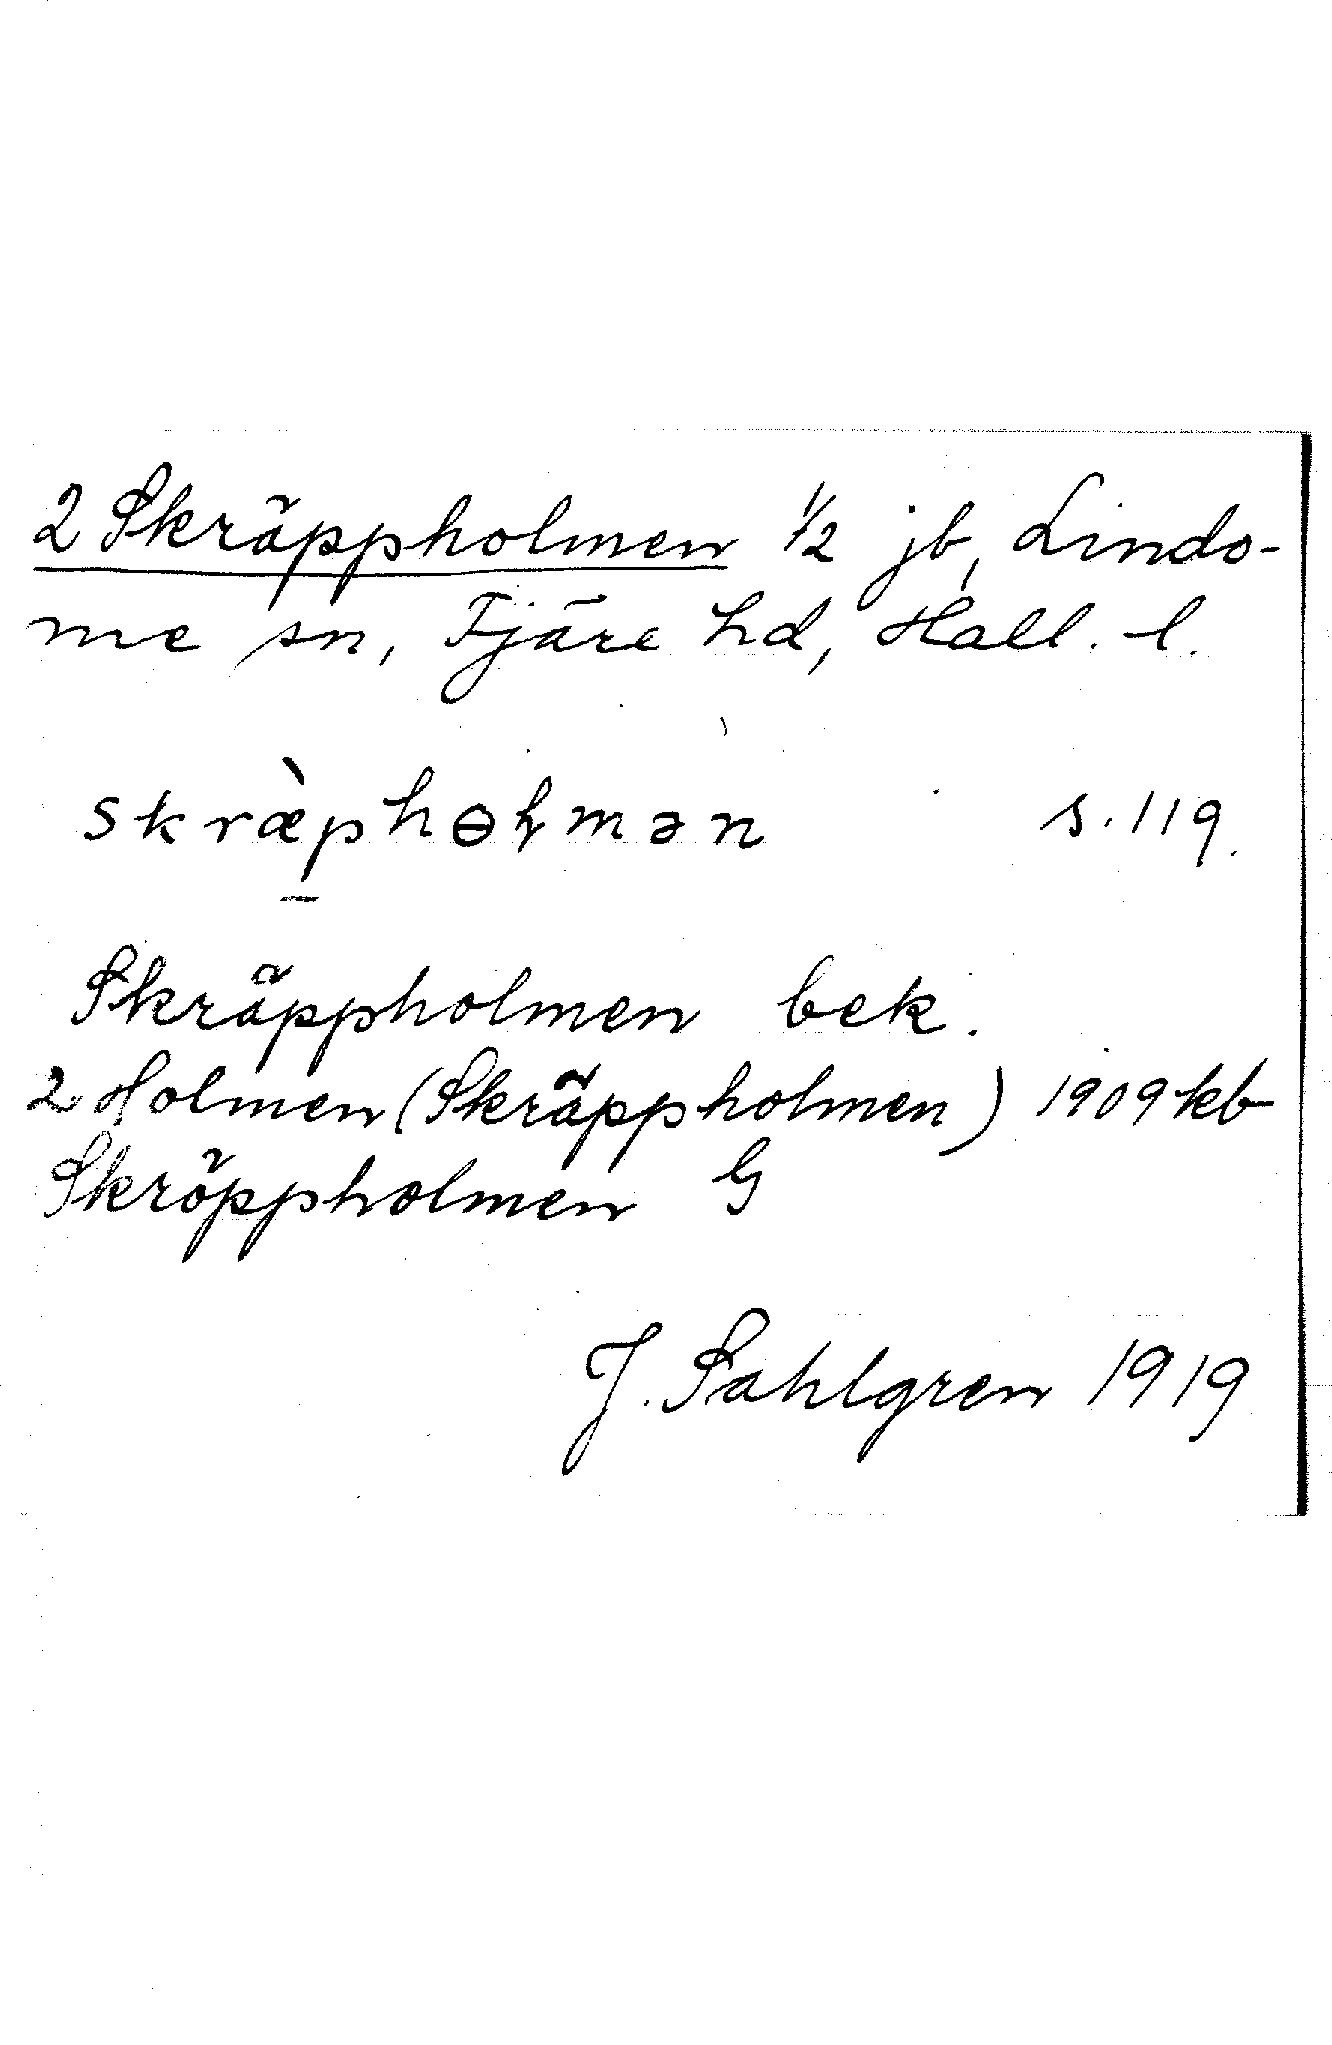 2 Skräppholmen 1/2 jb, Lindo-
me sn, Fjäre hd, Hall. l.
skræ̀phɵłmən s. 119.
Skräppholmen bek.
2 Holmen (Skräppholmen) 1909 kb
Skröppholmen G
J. Sahlgren 1919